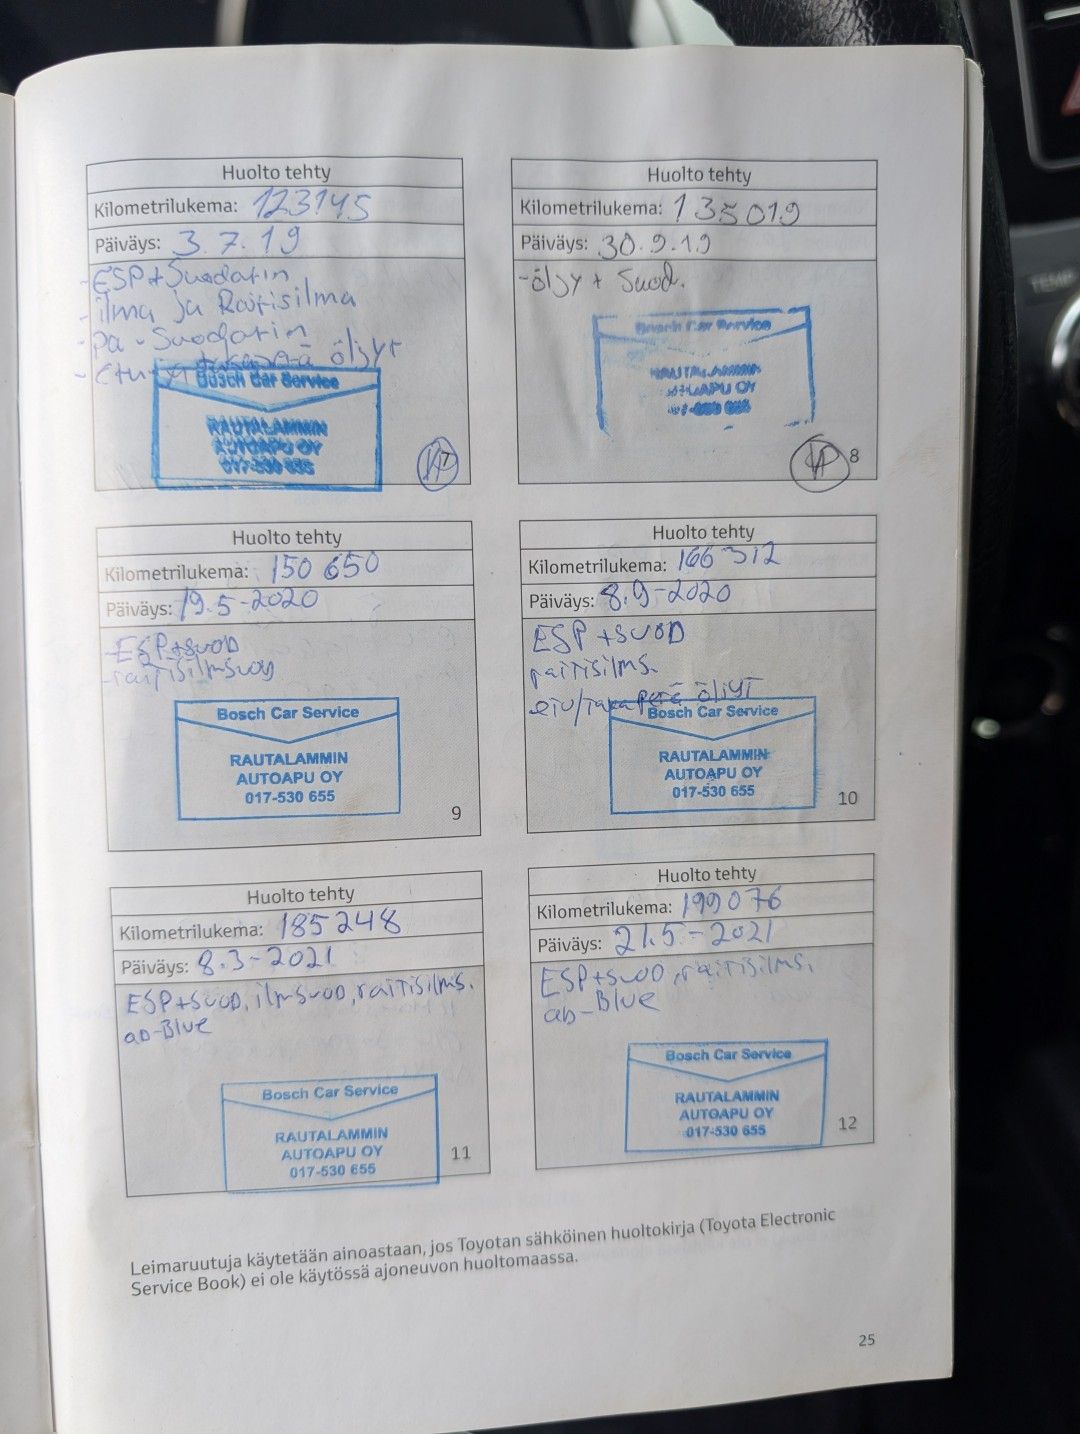 Huolto tehty
Kilometrilukema: 123145
Päiväys: 3.7.19
-ESP+Suodatin
-ilma ja Raitisilma
-pa-Suodatin
-etu + takaperä öljyt
Bosch Car Service
RAUTALAMMIN
AUTOAPU OY
017-530 655
7
Huolto tehty
Kilometrilukema: 135019
Päiväys: 30.9.19
-öljy + Suod.
Bosch Car Service
RAUTALAMMIN
AUTOAPU OY
8
Huolto tehty
Kilometrilukema: 150 650
Päiväys: 19.5-2020
-ESP+SUOD
-raitisilmsuod
Bosch Car Service
RAUTALAMMIN
AUTOAPU OY
017-530 655
9
Huolto tehty
Kilometrilukema: 166 312
Päiväys: 8.9-2020
ESP +SUOD
raitisilms.
etu/takaperä öljyt
Bosch Car Service
RAUTALAMMIN
AUTOAPU OY
017-530 655
10
Huolto tehty
Kilometrilukema: 185 248
Päiväys: 8.3-2021
ESP+SUOD, ilmsuod, raitisilms.
ad-Blue
Bosch Car Service
RAUTALAMMIN
AUTOAPU OY
017-530 655
11
Huolto tehty
Kilometrilukema: 199 076
Päiväys: 21.5-2021
ESP+SUOD, raitisilms.
ad-Blue
Bosch Car Service
RAUTALAMMIN
AUTOAPU OY
017-530 655
12
Leimaruutuja käytetään ainoastaan, jos Toyotan sähköinen huoltokirja (Toyota Electronic
Service Book) ei ole käytössä ajoneuvon huoltomaassa.
25
TEMP